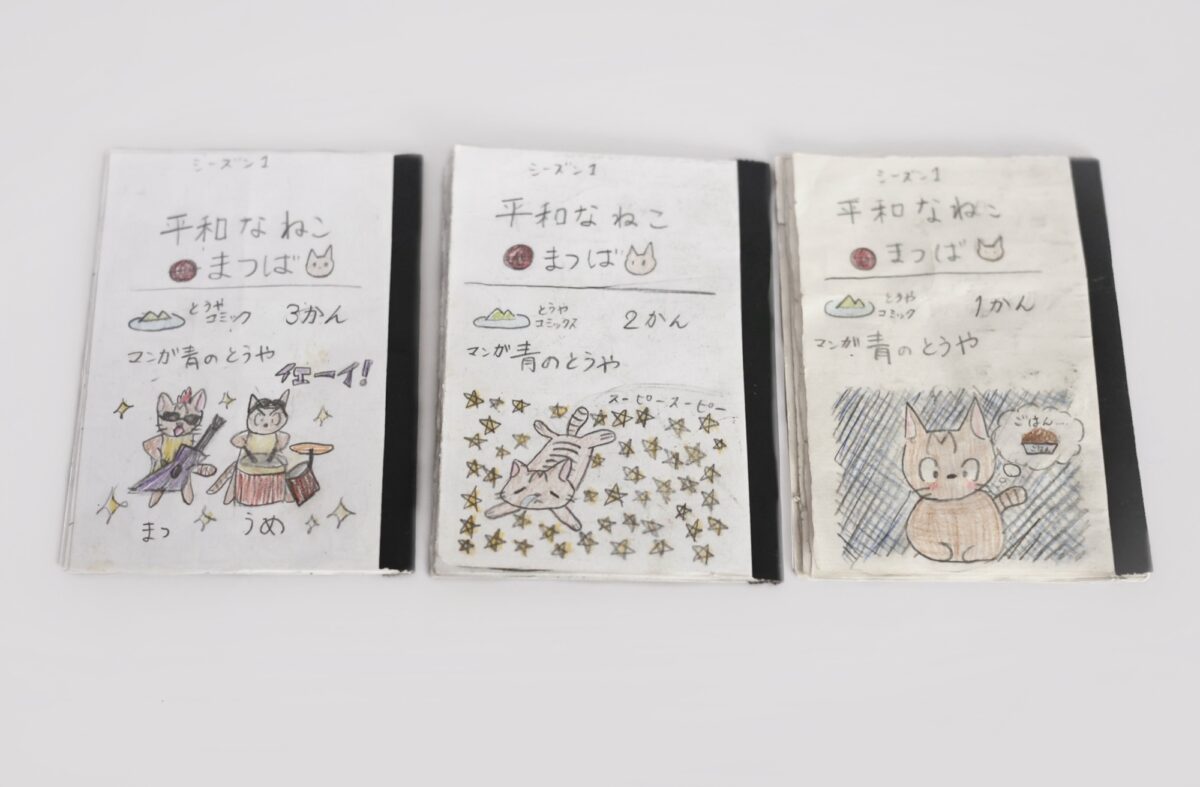 シーズン1
平和なねこ
まつば
とうや
コミック
3かん
マンガ青のとうや
チェーイ!
まつ
うめ
シーズン1
平和なねこ
まつば
とうや
コミックス
2かん
マンガ青のとうや
スーピースーピー
シーズン1
平和なねこ
まつば
とうや
コミック
1かん
マンガ青のとうや
ごはん…